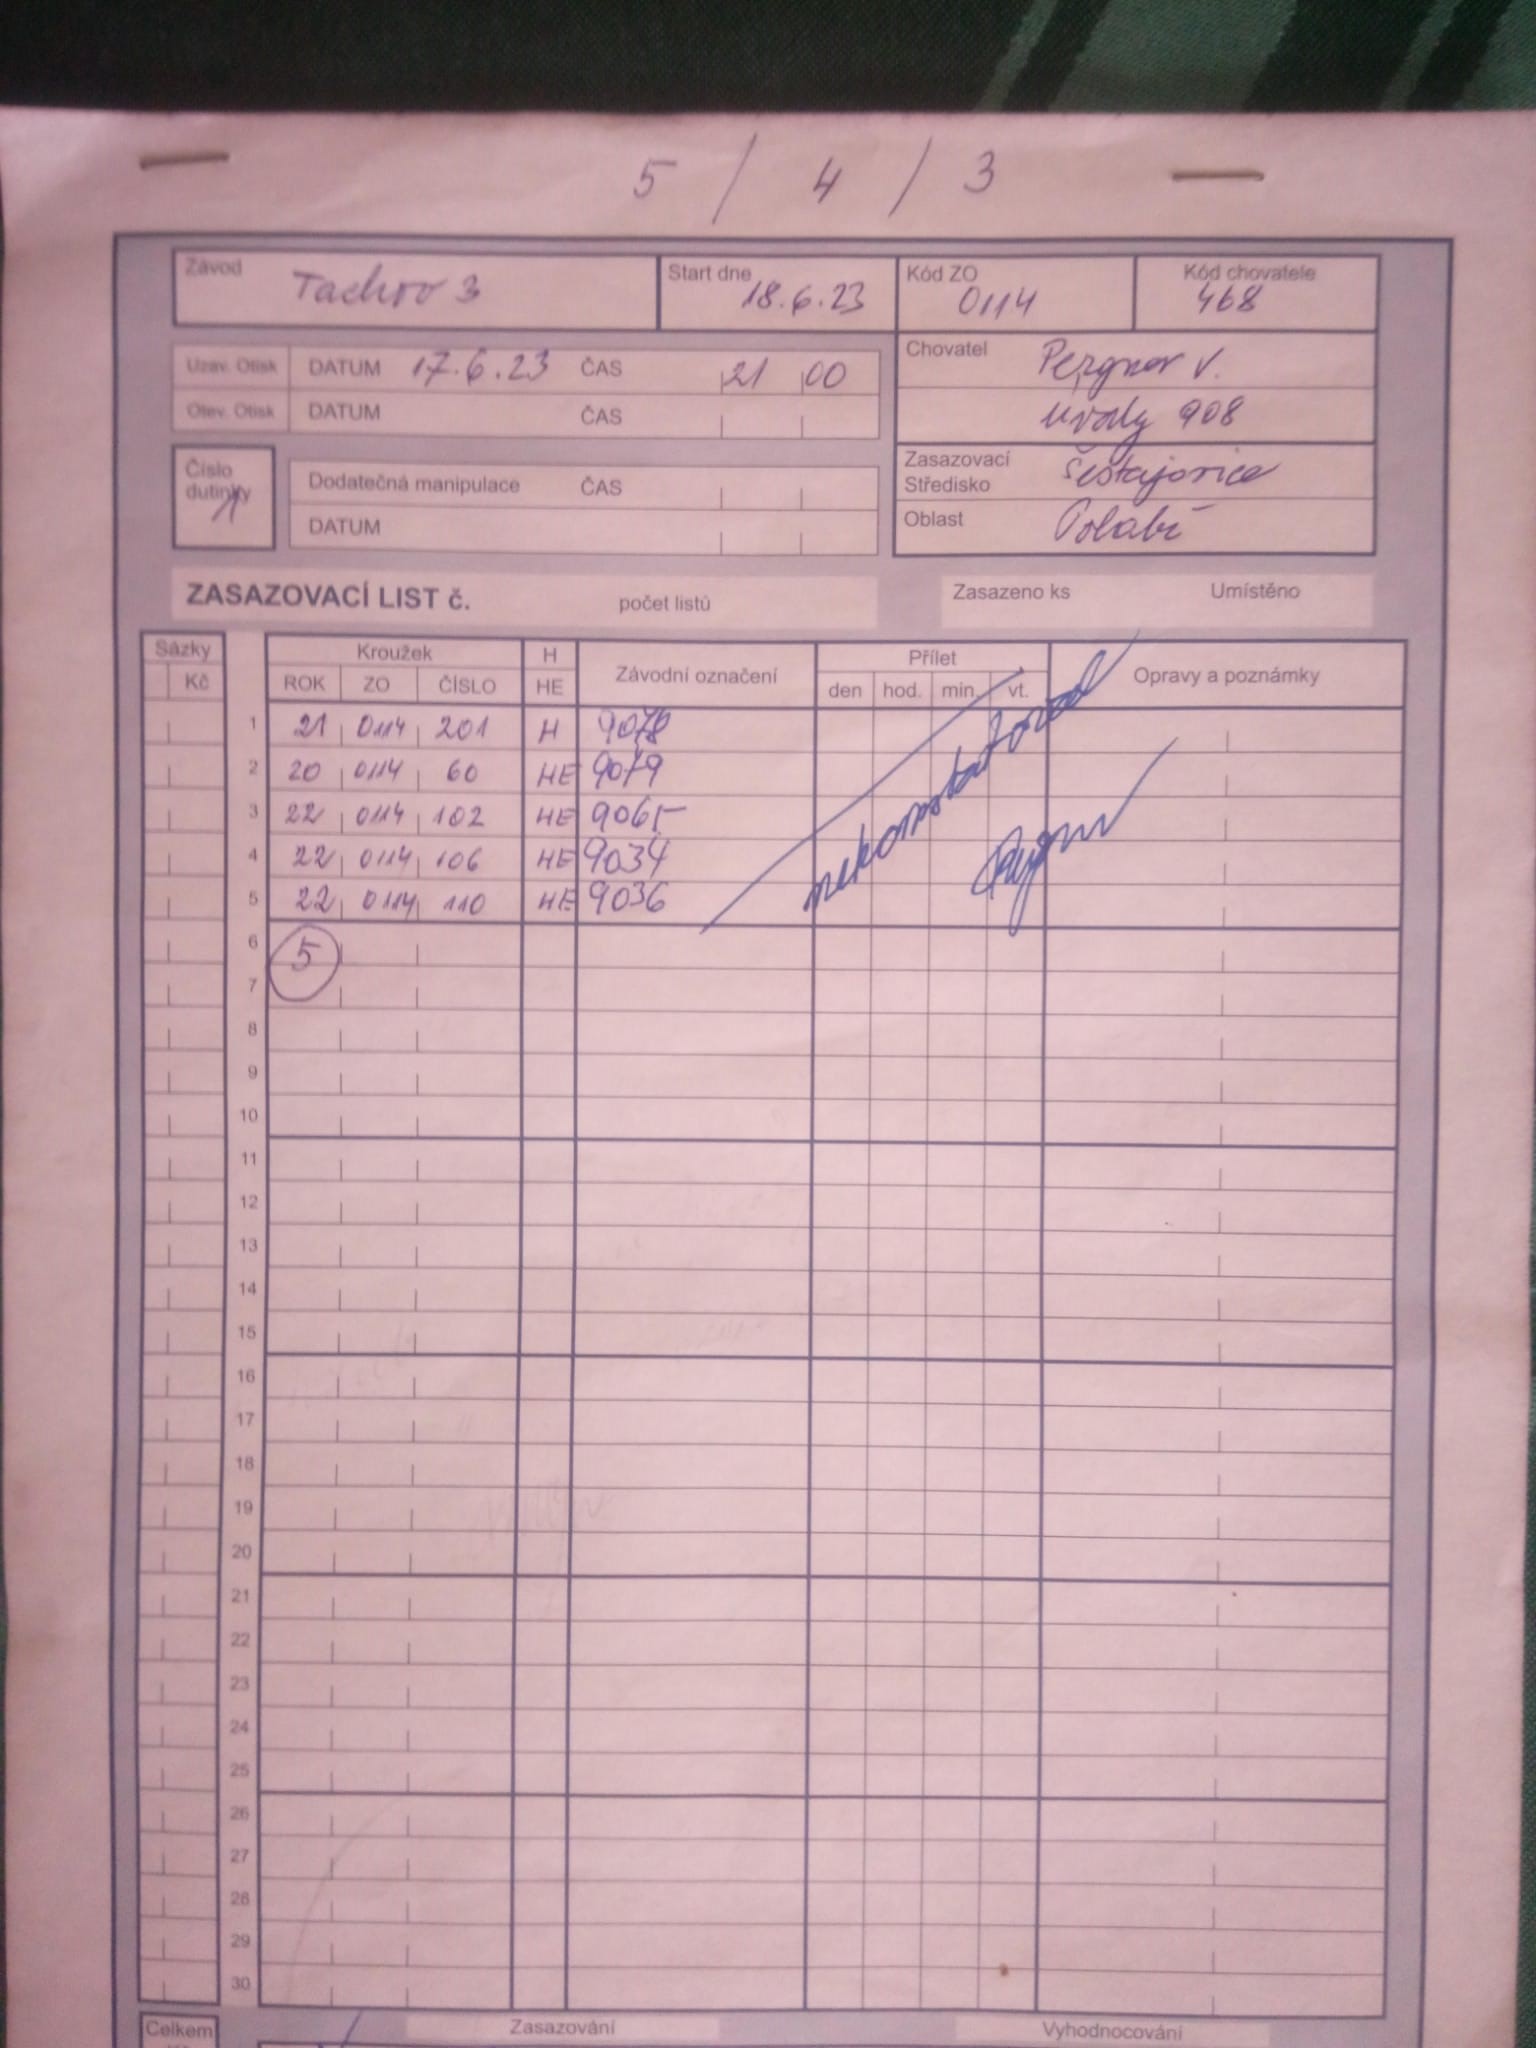 5 / 4 / 3
Závod Tachov 3 Start dne 18.6.23 Kód ZO 0114 Kód chovatele 468
Uzav. Otisk DATUM 17.6.23 ČAS 21 00
Otev. Otisk DATUM ČAS
Chovatel Pergner V.
Úvaly 908
Číslo dutinky
Dodatečná manipulace ČAS
DATUM
Zasazovací Středisko Šestajovice
Oblast Polabí
ZASAZOVACÍ LIST č. počet listů Zasazeno ks Umístěno
Sázky Kroužek H Závodní označení Přílet Opravy a poznámky
Kč ROK ZO ČÍSLO HE den hod. min. vt.
1 21 0114 201 H 9078
2 20 0114 60 HE 9079
3 22 0114 102 HE 9065
4 22 0114 106 HE 9034
5 22 0114 110 HE 9036
nekonstatoval
6 5
7
8
9
10
11
12
13
14
15
16
17
18
19
20
21
22
23
24
25
26
27
28
29
30
Celkem Zasazování Vyhodnocování